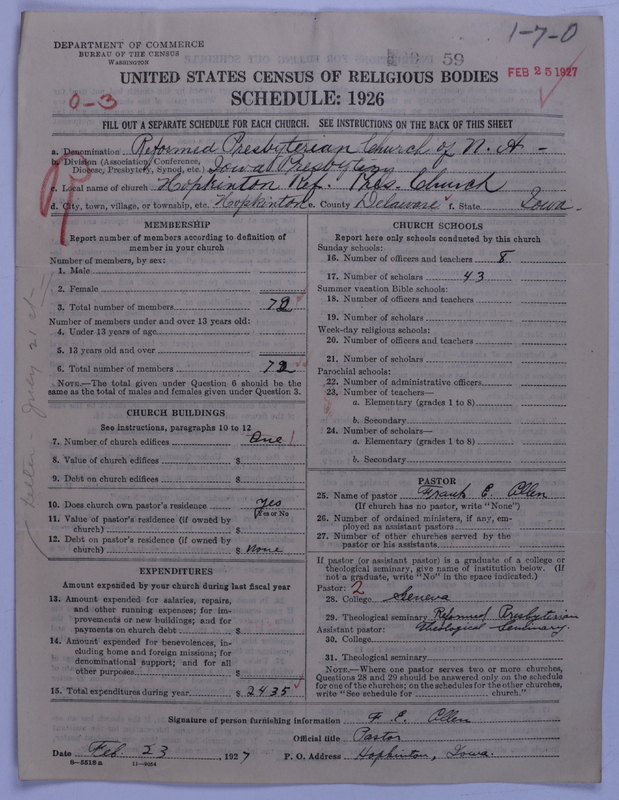 1-7-0
DEPARTMENT OF COMMERCE
BUREAU OF THE CENSUS
WASHINGTON
59
FEB 25 1927
UNITED STATES CENSUS OF RELIGIOUS BODIES
SCHEDULE: 1926
0-3
FILL OUT A SEPARATE SCHEDULE FOR EACH CHURCH. SEE INSTRUCTIONS ON THE BACK OF THIS SHEET
a. Denomination Reformed Presbyterian Church of N. A -
b. Division (Association, Conference, Diocese, Presbytery, Synod, etc.) Iowa Presbytery
c. Local name of church Hopkinton Ref. Pres. Church
d. City, town, village, or township, etc. Hopkinton e. County Delaware f. State Iowa.
MEMBERSHIP
Report number of members according to definition of
member in your church
Number of members, by sex:
1. Male
2. Female
3. Total number of members 72
Number of members under and over 13 years old:
4. Under 13 years of age
5. 13 years old and over
6. Total number of members 72
NOTE.—The total given under Question 6 should be
same as the total of males and females given under Question 3.
CHURCH BUILDINGS
See instructions, paragraphs 10 to 12
7. Number of church edifices One 1
8. Value of church edifices $
9. Debt on church edifices $
10. Does church own pastor's residence Yes
(Yes or No
11. Value of pastor's residence (if owned by
church) $
12. Debt on pastor's residence (if owned by
church) $ None
EXPENDITURES
Amount expended by your church during last fiscal year
13. Amount expended for salaries, repairs,
and other running expenses; for im-
provements or new buildings; and for
payments on church debt $
14. Amount expended for benevolences, in-
cluding home and foreign missions; for
denominational support; and for all
other purposes $
15. Total expenditures during year $ 2435
Letter - July 21st -
CHURCH SCHOOLS
Report here only schools conducted by this church
Sunday schools:
16. Number of officers and teachers 8
17. Number of scholars 43
Summer vacation Bible schools:
18. Number of officers and teachers
19. Number of scholars
Week-day religious schools:
20. Number of officers and teachers
21. Number of scholars
Parochial schools:
22. Number of administrative officers
23. Number of teachers—
a. Elementary (grades 1 to 8)
b. Secondary
24. Number of scholars—
a. Elementary (grades 1 to 8)
b. Secondary
PASTOR
25. Name of pastor Frank E. Allen
(If church has no pastor, write "None")
26. Number of ordained ministers, if any, em-
ployed as assistant pastors
27. Number of other churches served by the
pastor or his assistants
If pastor (or assistant pastor) is a graduate of a college or
theological seminary, give name of institution below. (If
not a graduate, write "No" in the space indicated.)
Pastor: 2
28. College Geneva
29. Theological seminary Reformed Presbyterian
Assistant pastor: Theological Seminary.
30. College
31. Theological seminary
NOTE.—Where one pastor serves two or more churches,
Questions 28 and 29 should be answered only on the schedule
for one of the churches; on the schedules for the other churches,
write "See schedule for church."
Signature of person furnishing information F. E. Allen
Official title Pastor
Date Feb 23, 1927 P. O. Address Hopkinton, Iowa.
8-5518 a 11-9054